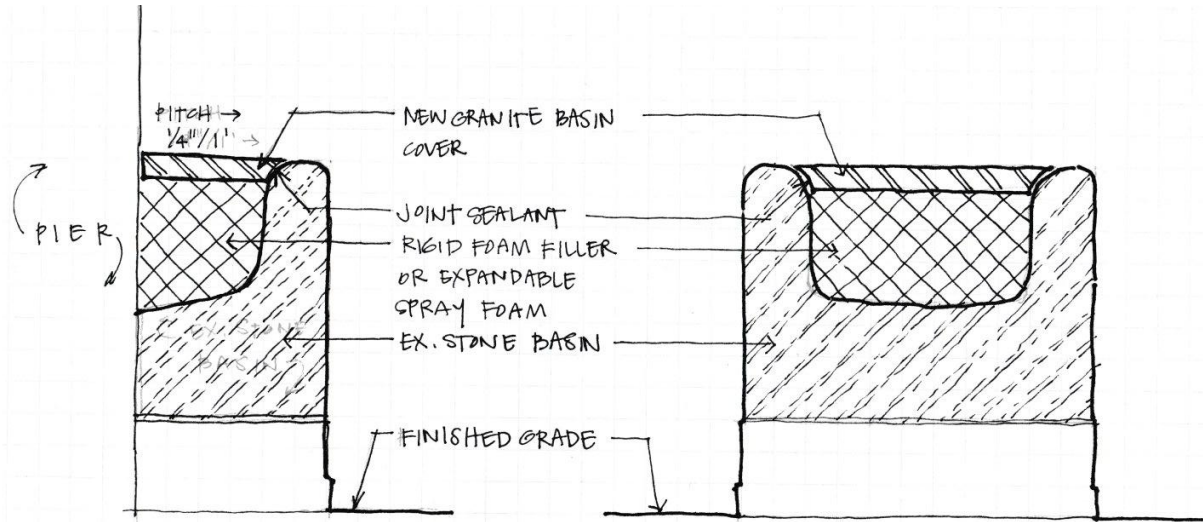 PITCH →
1/4"/1' →
PIER
NEW GRANITE BASIN
COVER
JOINT SEALANT
RIGID FOAM FILLER
OR EXPANDABLE
SPRAY FOAM
EX. STONE BASIN
FINISHED GRADE
EX. STONE
BASIN